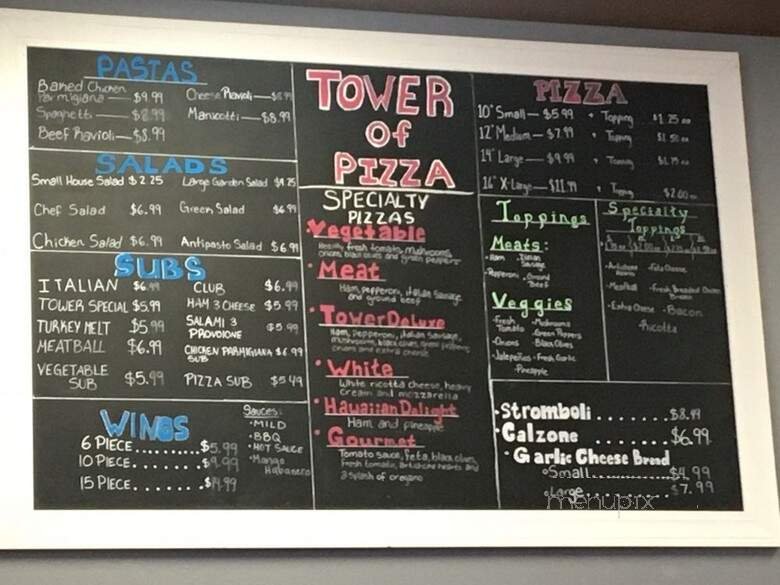 PASTAS
Baned Chicken
Parmigiana — $9.99
Cheese Ravioli —
Spaghetti — $8.99
Manicotti — $8.99
Beef Ravioli — $8.99
SALADS
Small House Salad $2.25
Large Garden Salad $4.25
Chef Salad $6.99
Green Salad $6.99
Chicken Salad $6.99
Antipasto Salad $6.99
SUBS
ITALIAN $6.99
CLUB $6.99
TOWER SPECIAL $5.99
HAM 3 CHEESE $5.99
TURKEY MELT $5.99
SALAMI 3
PROVOIONE $5.99
MEATBALL $6.99
CHICKEN PARMIGIANA $6.99
SUB
VEGETABLE
SUB $5.99
PIZZA SUB $5.49
WINGS
6 PIECE.........$5.99
10 PIECE........$9.99
15 PIECE........$14.99
Sauces:
•MILD
•BBQ
•HOT SAUCE
•Mango
Habanero
TOWER
OF
PIZZA
SPECIALTY
PIZZAS
•Vegetable
fresh tomato, mushrooms,
onions, black olives and green peppers
•Meat
Ham, pepperoni, italian sausage,
and ground beef
•Tower Deluxe
Ham, Pepperoni, italian sausage,
mushrooms, black olives, green peppers,
onions and extra cheese
•White
White ricotta cheese, heavy
cream and mozzarella
•Hawaiian Delight
Ham and pineapple
•Gourmet
Tomato sauce, feta, black olives,
fresh tomato, artichoke hearts and
a splash of oregano
PIZZA
10" Small — $5.99 + Topping $1.25 ea
12" Medium — $7.99 + Topping $1.50 ea
14" Large — $9.99 + Topping $1.75 ea
16" X-Large — $11.99 + Topping $2.00 ea
Toppings
Meats:
•Ham
•Italian
Sausage
•Pepperoni
•Ground
Beef
Veggies
•Fresh
Tomato
•Mushrooms
•Green Peppers
•Onions
•Black Olives
•Jalepeños
•Fresh Garlic
•Pineapple
Specialty
Toppings
•Artichoke
Hearts
•Feta Cheese
•Meatball
•Fresh Breaded Chicken
Breast
•Extra Cheese
•Bacon
•Ricotta
•Stromboli.......$8.99
•Calzone.......$6.99
•Garlic Cheese Bread
•Small..........$4.99
•Large..........$7.99
menupix